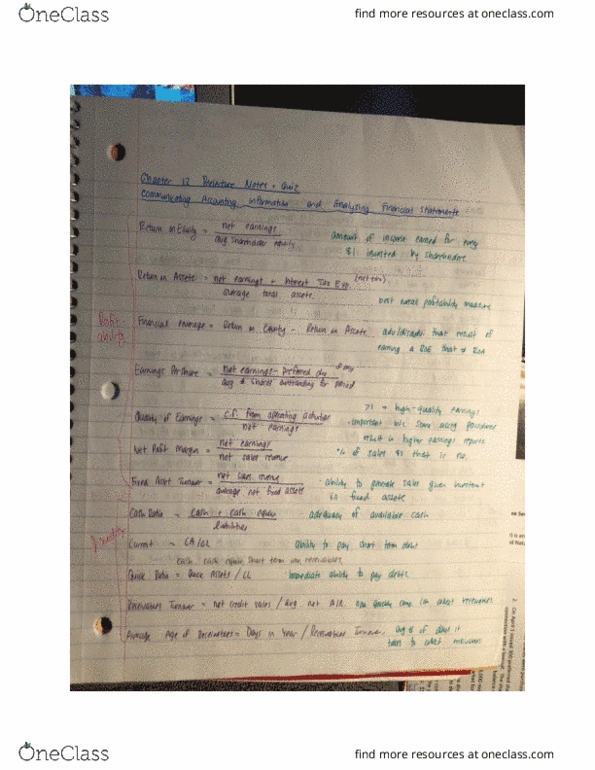 OneClass
find more resources at oneclass.com
Chapter 12 Notes + Quiz
Communicating Accounting Information and Analyzing Financial Statements
Return on Equity = net earnings / avg shareholder equity
amount of income earned for every
$1 invested by shareholders
Return on Assets = net earnings + Interest Exp (net tax) / average total assets
best overall profitability measure
Profit-
ability
Financial leverage = Return on Equity - Return on Assets
that result of
earning a ROE that ≠ ROA
Earnings Per Share = net earnings - preferred div / avg # shares outstanding for period
Quality of Earnings = C.F. from operating activities / net earnings
>1 = high-quality earnings
important b/c some acctg procedures
result in higher earnings reports
Net Profit Margin = net earnings / net sales revenue
% of sales $s that is
Fixed Asset Turnover = net sales revenue / average net fixed assets
ability to generate sales given investment
in fixed assets
Cash Ratio = cash + cash equiv / liabilities
adequacy of available cash
Current = CA/CL
ability to pay short term debt
cash, cash equiv, short term inv, receivables
Quick Ratio = Quick Assets / CL
immediate ability to pay debts
Receivables Turnover = net credit sales / avg. net A/R
how quickly comp. can collect receivables
Average Age of Receivables = Days in Year / Receivables Turnover
avg # of days it
takes to collect receivables
OneClass
find more resources at oneclass.com